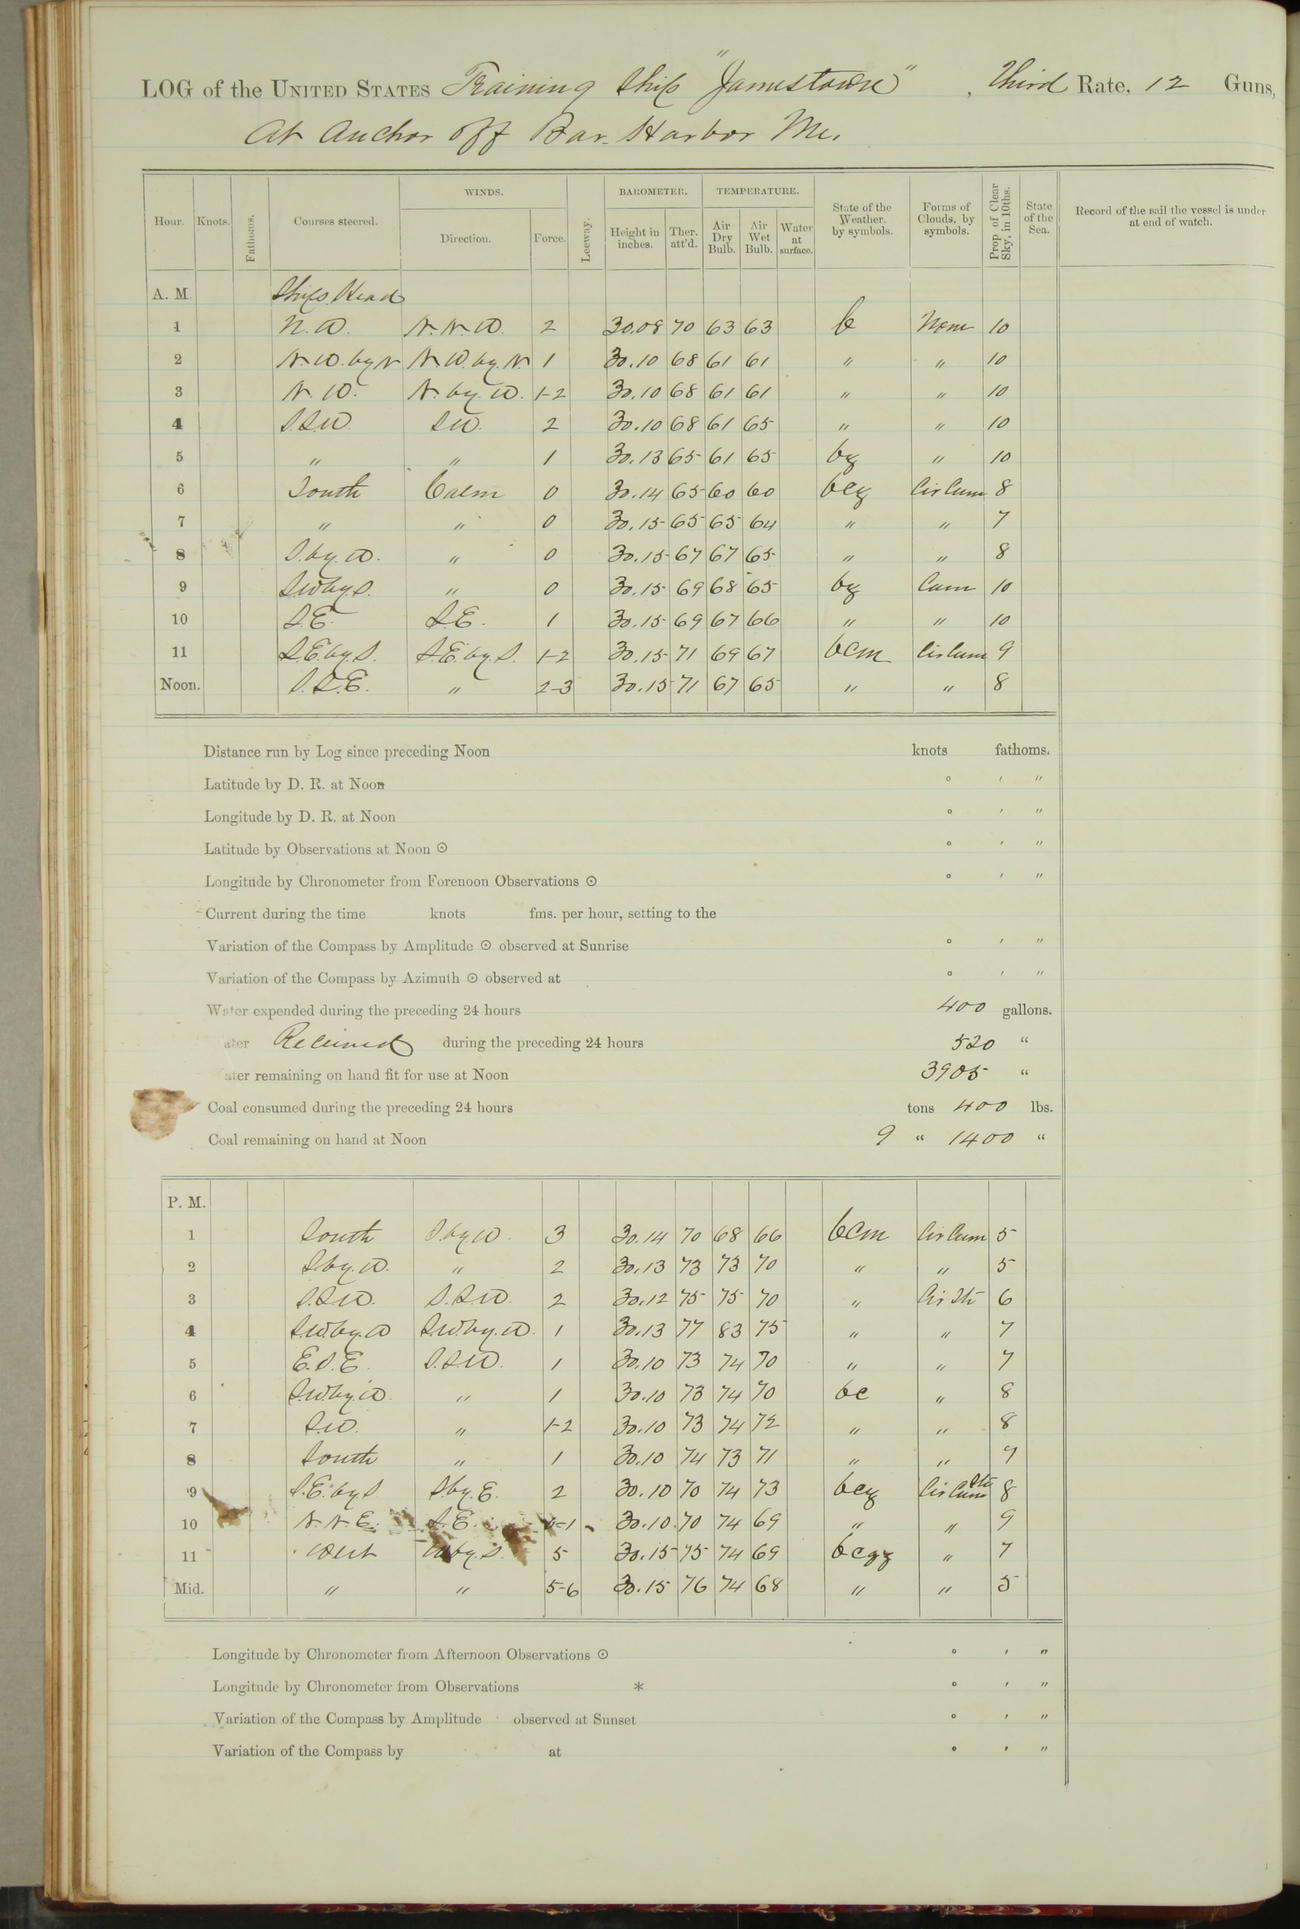 LOG of the UNITED STATES Training Ship "Jamestown", Third Rate, 12 Guns,
At Anchor off Bar Harbor Me.
Hour. Knots. Fathoms. Courses steered. WINDS. Direction. Force. Leeway. BAROMETER. Height in inches. Ther. att'd. TEMPERATURE. Air Dry Bulb. Air Wet Bulb. Water at surface. State of the Weather, by symbols. Forms of Clouds, by symbols. Prop. of Clear Sky, in 10ths. State of the Sea. Record of the sail the vessel is under at end of watch.
A. M. Ships Head
1 N.W. N.N.W. 2 30.08 70 63 63 b None 10
2 N.W. by N N.W. by N. 1 30.10 68 61 61 " " 10
3 N.W. N. by W. 1-2 30.10 68 61 61 " " 10
4 S.S.W. S.W. 2 30.10 68 61 65 " " 10
5 " " 1 30.13 65 61 65 bz " 10
6 South Calm 0 30.14 65 60 60 bcz Cir Cum 8
7 " " 0 30.15 65 65 64 " " 7
8 S. by W. " 0 30.15 67 67 65 " " 8
9 S.W. by S. " 0 30.15 69 68 65 bz Cum 10
10 S.E. S.E. 1 30.15 69 67 66 " " 10
11 S.E. by S. S.E. by S. 1-2 30.15 71 69 67 bcm Cir Cum 9
Noon. S.S.E. " 2-3 30.15 71 67 65 " " 8
Distance run by Log since preceding Noon knots fathoms.
Latitude by D. R. at Noon ° ' "
Longitude by D. R. at Noon ° ' "
Latitude by Observations at Noon ⊙ ° ' "
Longitude by Chronometer from Forenoon Observations ⊙ ° ' "
Current during the time knots fms. per hour, setting to the
Variation of the Compass by Amplitude ⊙ observed at Sunrise ° ' "
Variation of the Compass by Azimuth ⊙ observed at ° ' "
Water expended during the preceding 24 hours 400 gallons.
ater Received during the preceding 24 hours 520 "
ater remaining on hand fit for use at Noon 3905 "
Coal consumed during the preceding 24 hours tons 400 lbs.
Coal remaining on hand at Noon 9 " 1400 "
P. M.
1 South S. by W. 3 30.14 70 68 66 bcm Cir Cum 5
2 S. by W. " 2 30.13 73 73 70 " " 5
3 S.S.W. S.S.W. 2 30.12 75 75 70 " Cir Str 6
4 S.W. by W S.W. by W. 1 30.13 77 83 75 " " 7
5 E.S.E. S.S.W. 1 30.10 73 74 70 " " 7
6 S.W. by W. " 1 30.10 73 74 70 bc " 8
7 S.W. " 1-2 30.10 73 74 72 " " 8
8 South " 1 30.10 74 73 71 " " 9
9 S.E. by S S. by E. 2 30.10 70 74 73 bcz Cir Cum Str 8
10 N.N.E. S.E. 0-1 30.10 70 74 69 " " 9
11 West W by S. 5 30.15 75 74 69 bcqz " 7
Mid. " " 5-6 30.15 76 74 68 " " 5
Longitude by Chronometer from Afternoon Observations ⊙ ° ' "
Longitude by Chronometer from Observations * ° ' "
Variation of the Compass by Amplitude observed at Sunset ° ' "
Variation of the Compass by at ° ' "